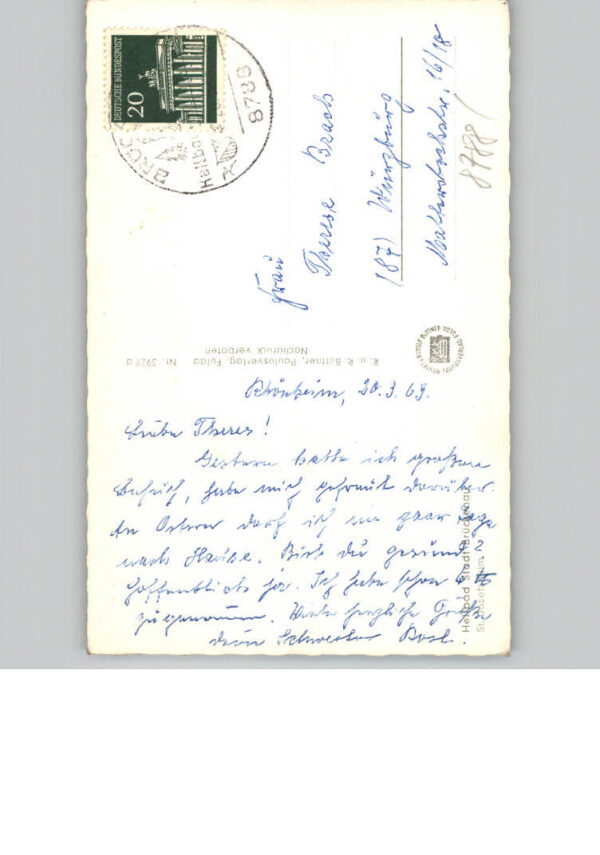 DEUTSCHE BUNDESPOST
20
BRÜC
Heilb
8788
Frau
Therese Brach
(87) Würzburg
16/18
8788
R. u. R. Büttner, Paulusverlag, Fulda Nr. 3929 d
Nachdruck verboten
Rhönheim, 20.3.69.
Liebe Theres!
Gestern hatte ich großen
Besuch, habe mich gefreut darüber.
An Ostern darf ich ein paar Tage
nach Hause. Bist du gesund?
Hoffentlich ja. Ich habe schon 6 ℔
zugenommen. Viele herzliche Grüße
deine Schwester
Heilbad Stadt Brückenau